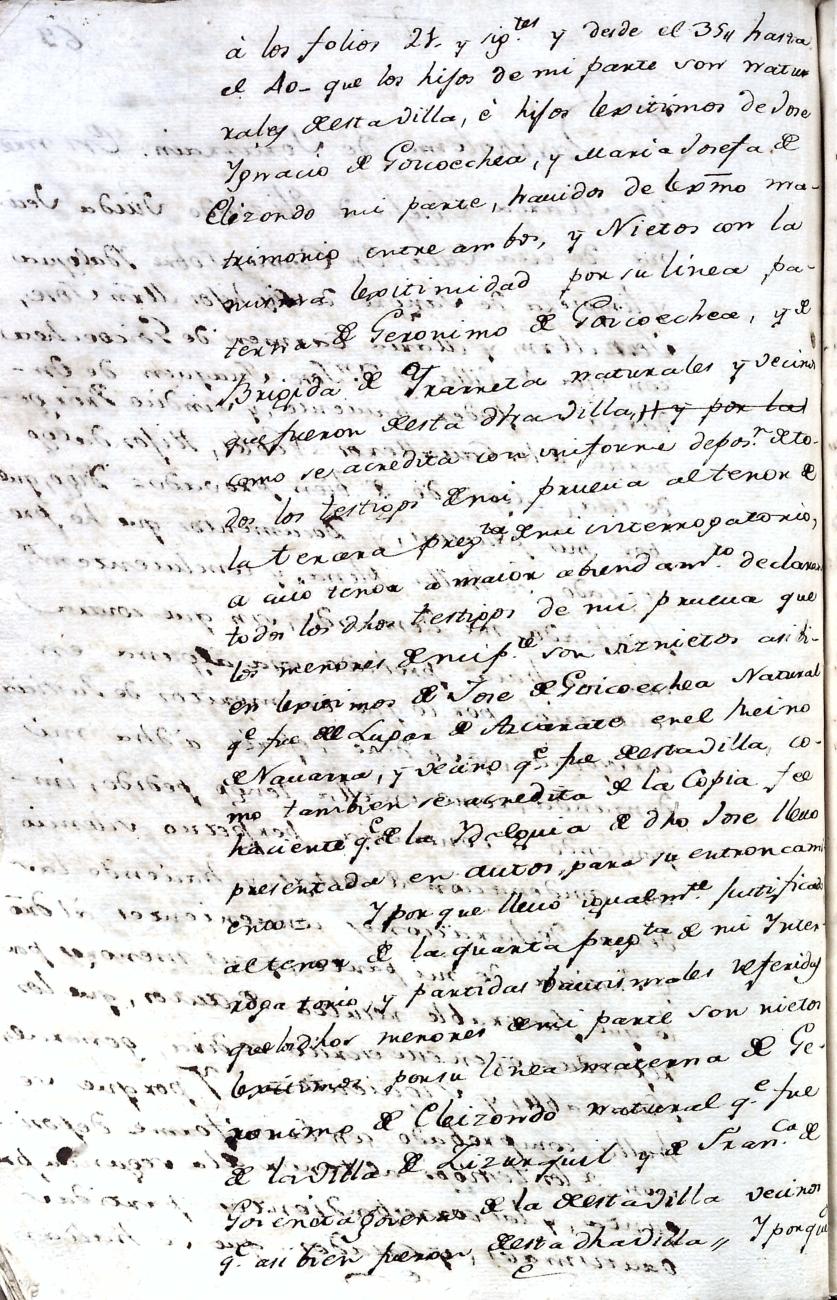 à los folios 21. y sig.tes y desde el 35 hasta
el 40 que los hijos de mi parte son natu
rales de esta Villa, è hijos lexitimos de Jose
Ygnacio de Goicoechea, y Maria Josefa de
Elizondo mi parte, havidos de lex.mo ma-
trimonio entre ambos, y Nietos con la
misma lexitimidad por su linea pa-
terna de Geronimo de Goicoechea, y de
Brigida de Yrarreta naturales y vecinos
que fueron de esta dha Villa, y por la
como se acredita con uniforme depos.n de to-
dos los testigos de mi prueva al tenor de
la tercera preg.ta de mi interrogatorio,
a cuio tenor a maior abundam.to declaran
todos los dhos testigos de mi prueva que
los menores de mi p.te son viznietos asi bi-
en lexitimos de Jose de Goicoechea Natural
q.e fue del Lugar de Azcarate en el Reino
de Navarra, y vecino q.e fue de esta Villa, co-
mo tambien se acredita de la Copia fee
haciente q.e de la Ydalguia de dho Jose llevo
presentada en autos, para su entroncami
ento = Y porque llevo igualm.te justificado
al tenor de la quarta preg.ta de mi Inter
rogatorio, y partidas bautismales referidas
que los dhos menores de mi parte son nietos
lexitimos por su linea materna de Ge-
ronimo de Elizondo natural q.e fue
de la Villa de Lizurquil y de Fran.ca de
de la de esta Villa vecinos
q.e asi bien fueron de esta dha Villa, Y porque